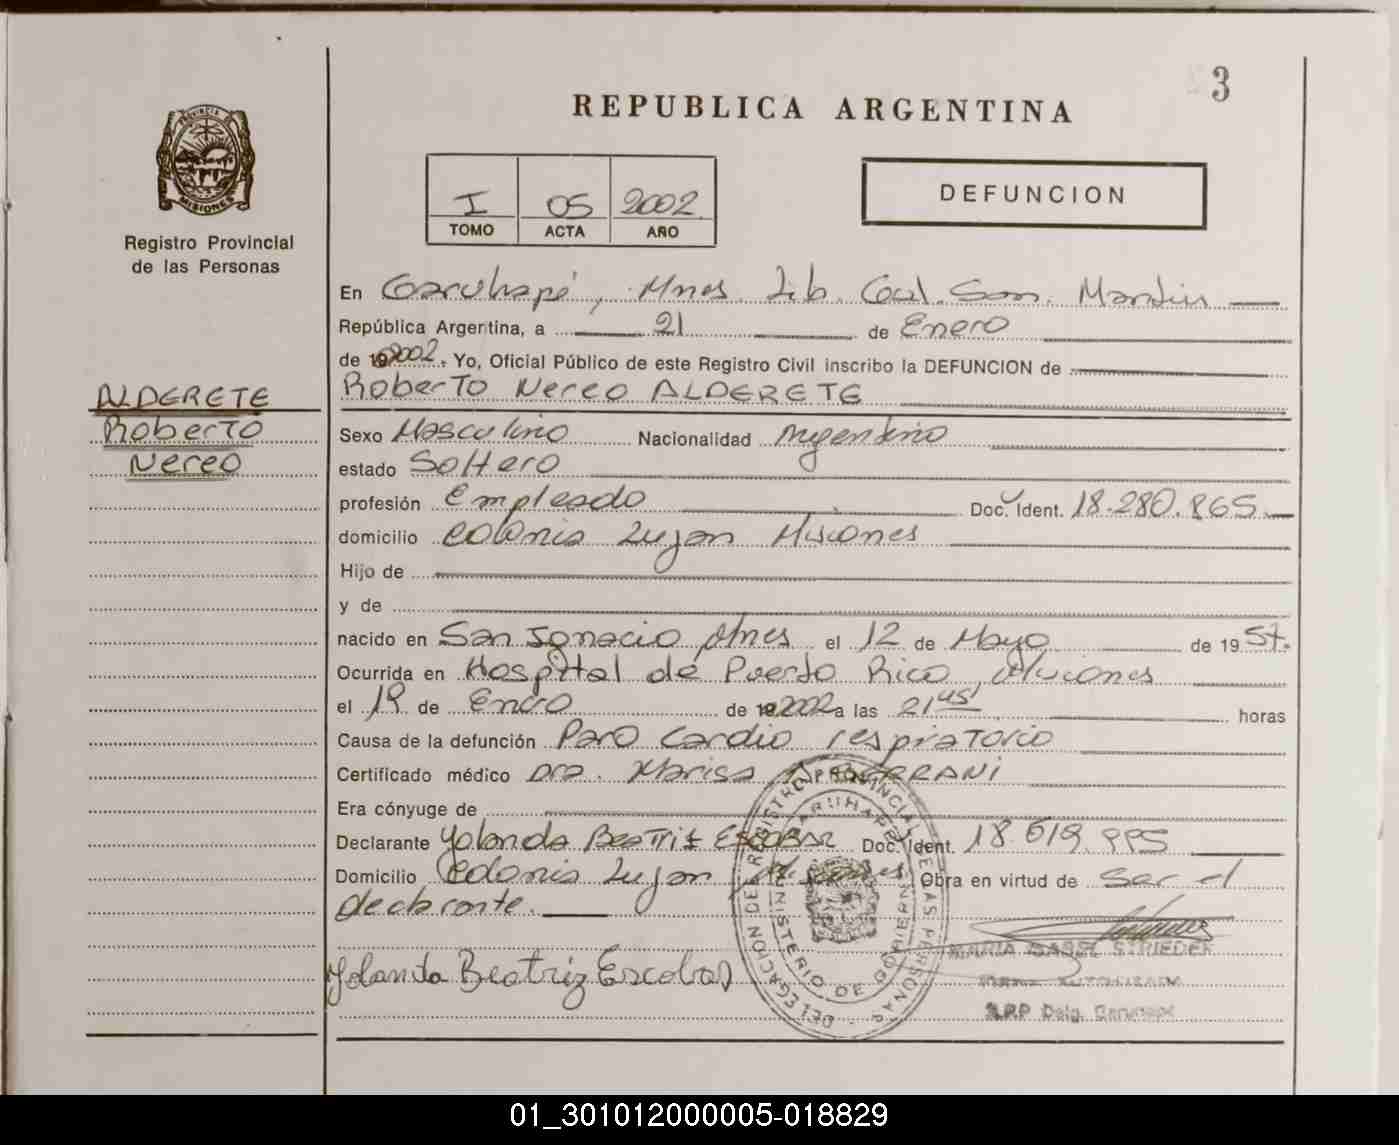 3
REPUBLICA ARGENTINA
PROVINCIA DE
MISIONES
Registro Provincial
de las Personas
I 05 2002
TOMO ACTA AÑO
DEFUNCION
En Garuhapé, Mnes. Lib. Gral. San. Martín
República Argentina, a 21 de Enero
de 2002. Yo, Oficial Público de este Registro Civil inscribo la DEFUNCION de
Roberto Nereo ALDERETE
ALDERETE
Roberto
Nereo
Sexo Masculino Nacionalidad Argentino
estado Soltero
profesión Empleado Doc. Ident. 18.280.865.
domicilio Colonia Lujan Misiones
Hijo de
y de
nacido en San Ignacio Mnes el 12 de Mayo de 1957.
Ocurrida en Hospital de Puerto Rico, Misiones
el 19 de Enero de 2002 a las 21 45 horas
Causa de la defunción Paro Cardio respiratorio
Certificado médico Dra. Marisa
Era cónyuge de
Declarante Yolanda Beatriz ESCOBAR Doc. Ident. 18.619.995
Domicilio Colonia Lujan, Misiones Obra en virtud de Ser el
declarante.
Yolanda Beatriz Escobar
DELEGACION DEL REGISTRO PROVINCIAL DE LAS PERSONAS
GARUHAPE
MINISTERIO DE GOBIERNO
MARIA ISABEL STRIEDER
FIRMA AUTORIZADA
R.P.P Deleg. Garuhapé
01_301012000005-018829